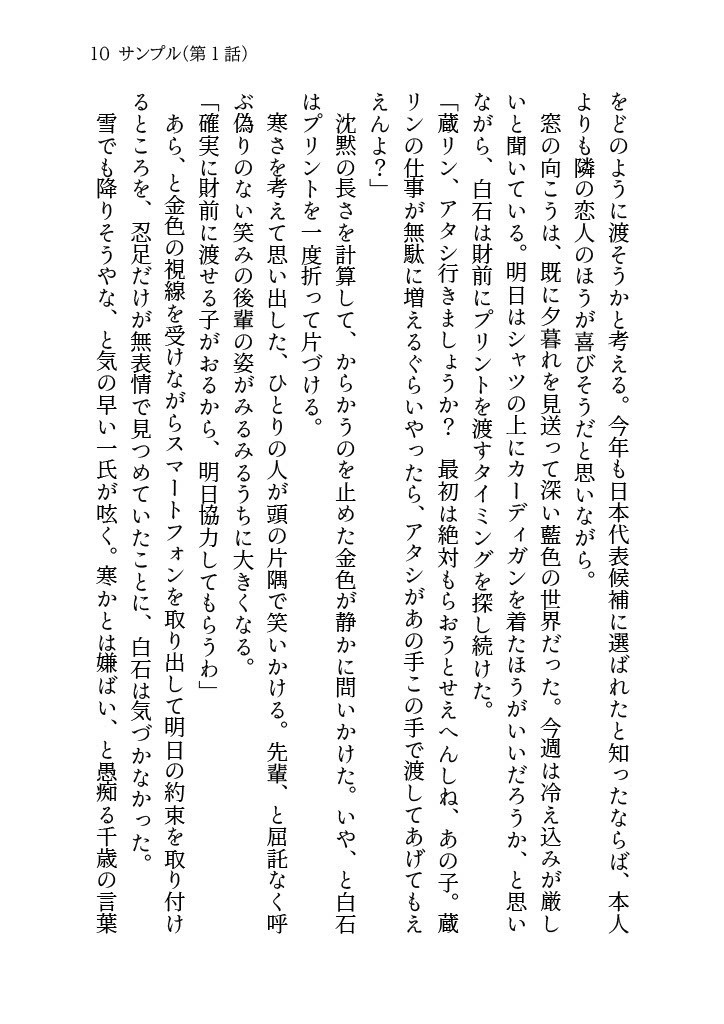 10 サンプル（第１話）
をどのように渡そうかと考える。今年も日本代表候補に選ばれたと知ったならば、本人
よりも隣の恋人のほうが喜びそうだと思いながら。
　窓の向こうは、既に夕暮れを見送って深い藍色の世界だった。今週は冷え込みが厳し
いと聞いている。明日はシャツの上にカーディガンを着たほうがいいだろうか、と思い
ながら、白石は財前にプリントを渡すタイミングを探し続けた。
「蔵リン、アタシ行きましょうか？　最初は絶対もらおうとせえへんしね、あの子。蔵
リンの仕事が無駄に増えるぐらいやったら、アタシがあの手この手で渡してあげてもえ
えんよ？」
　沈黙の長さを計算して、からかうのを止めた金色が静かに問いかけた。いや、と白石
はプリントを一度折って片づける。
　寒さを考えて思い出した、ひとりの人が頭の片隅で笑いかける。先輩、と屈託なく呼
ぶ偽りのない笑みの後輩の姿がみるみるうちに大きくなる。
「確実に財前に渡せる子がおるから、明日協力してもらうわ」
　あら、と金色の視線を受けながらスマートフォンを取り出して明日の約束を取り付け
るところを、忍足だけが無表情で見つめていたことに、白石は気づかなかった。
　雪でも降りそうやな、と気の早い一氏が呟く。寒かとは嫌ばい、と愚痴る千歳の言葉